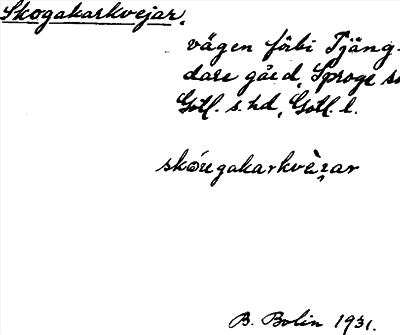 Skogakarkvejar.
vägen förbi Tjäng-
dare gård, Sproge
Gotl. s. hd, Gotl. l.
skóugakarkvè̱ɪar
B. Bolin 1931.